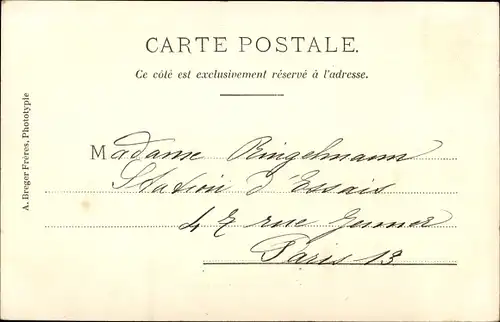 CARTE POSTALE.
Ce côté est exclusivement réservé à l'adresse.
A. Breger Frères, Phototypie
Madame Ringelmann
Station d'Essais
47 rue Jenner
Paris 13